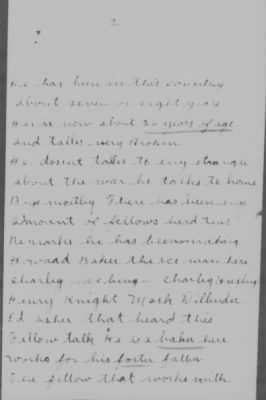 2
He has been in this country
about seven or eight years
He is now about 20 years of age
and talks very Broken
He dosent talk to eny stranger
about the war he talks to home
Boys mostly There has been eny
amount of fellows herd this
Remarks he has been making
Howard Baker the ice man here
Charley
Henry Knight Mark Dilinder
Ed asher that heard this
Fellow talk He is a baker here
works for his foster father
The fellow that works with